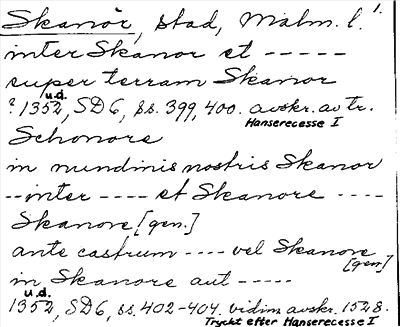 Skanör, stad, Malm. l. 1.
inter Skanor et -----
super terram Skanor
u.d.
? 1352, SD6, ss. 399, 400. avskr. av tr.
Hanserecesse I
Schonore
in nundinis nostris Skanor
-- inter ---- et Skanore ----
Skanore [gen.]
ante castrum ---- vel Skanore
[gen]
in Skanore aut -----
u.d.
1352, SD6, ss. 402-404. vidim. avskr. 1528.
Tryckt efter Hanserecesse I